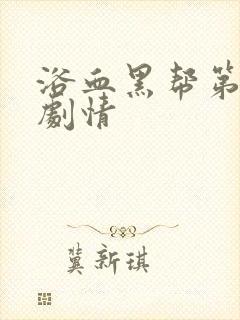 浴血黑帮第
劇情
冀新琪